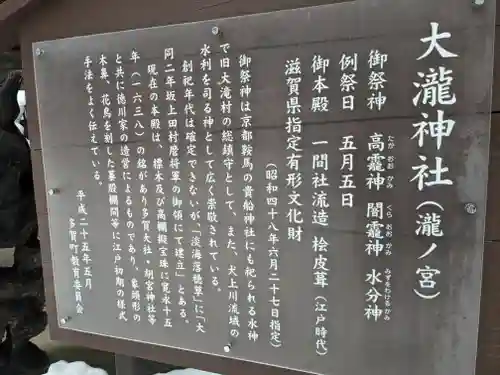 大瀧神社(瀧ノ宮)
御祭神 高龗神 闇龗神 水分神
たか おおかみ くら おおかみ みずをわけるかみ
例祭日 五月五日
御本殿 一間社流造 桧皮葺(江戸時代)
滋賀県指定有形文化財
(昭和四十八年六月二十七日指定)
御祭神は京都鞍馬の貴船神社にも祀られる水神
で旧大滝村の総鎮守として、また、犬上川流域の
水利を司る神として広く崇敬されている。
創祀年代は確定できないが、「淡海落穂草」に「大
同二年坂上田村麿将軍の御領にて建立」とある。
現在の本殿は、棟木及び高欄擬宝珠に寛永十五
年(一六三八)の銘があり多賀大社・胡宮神社等
と共に徳川家の造営によるものであり、象頭形の
木鼻、花鳥を刻した蟇股欄間等に江戸初期の様式
手法をよく伝えている。
平成二十五年五月
多賀町教育委員会